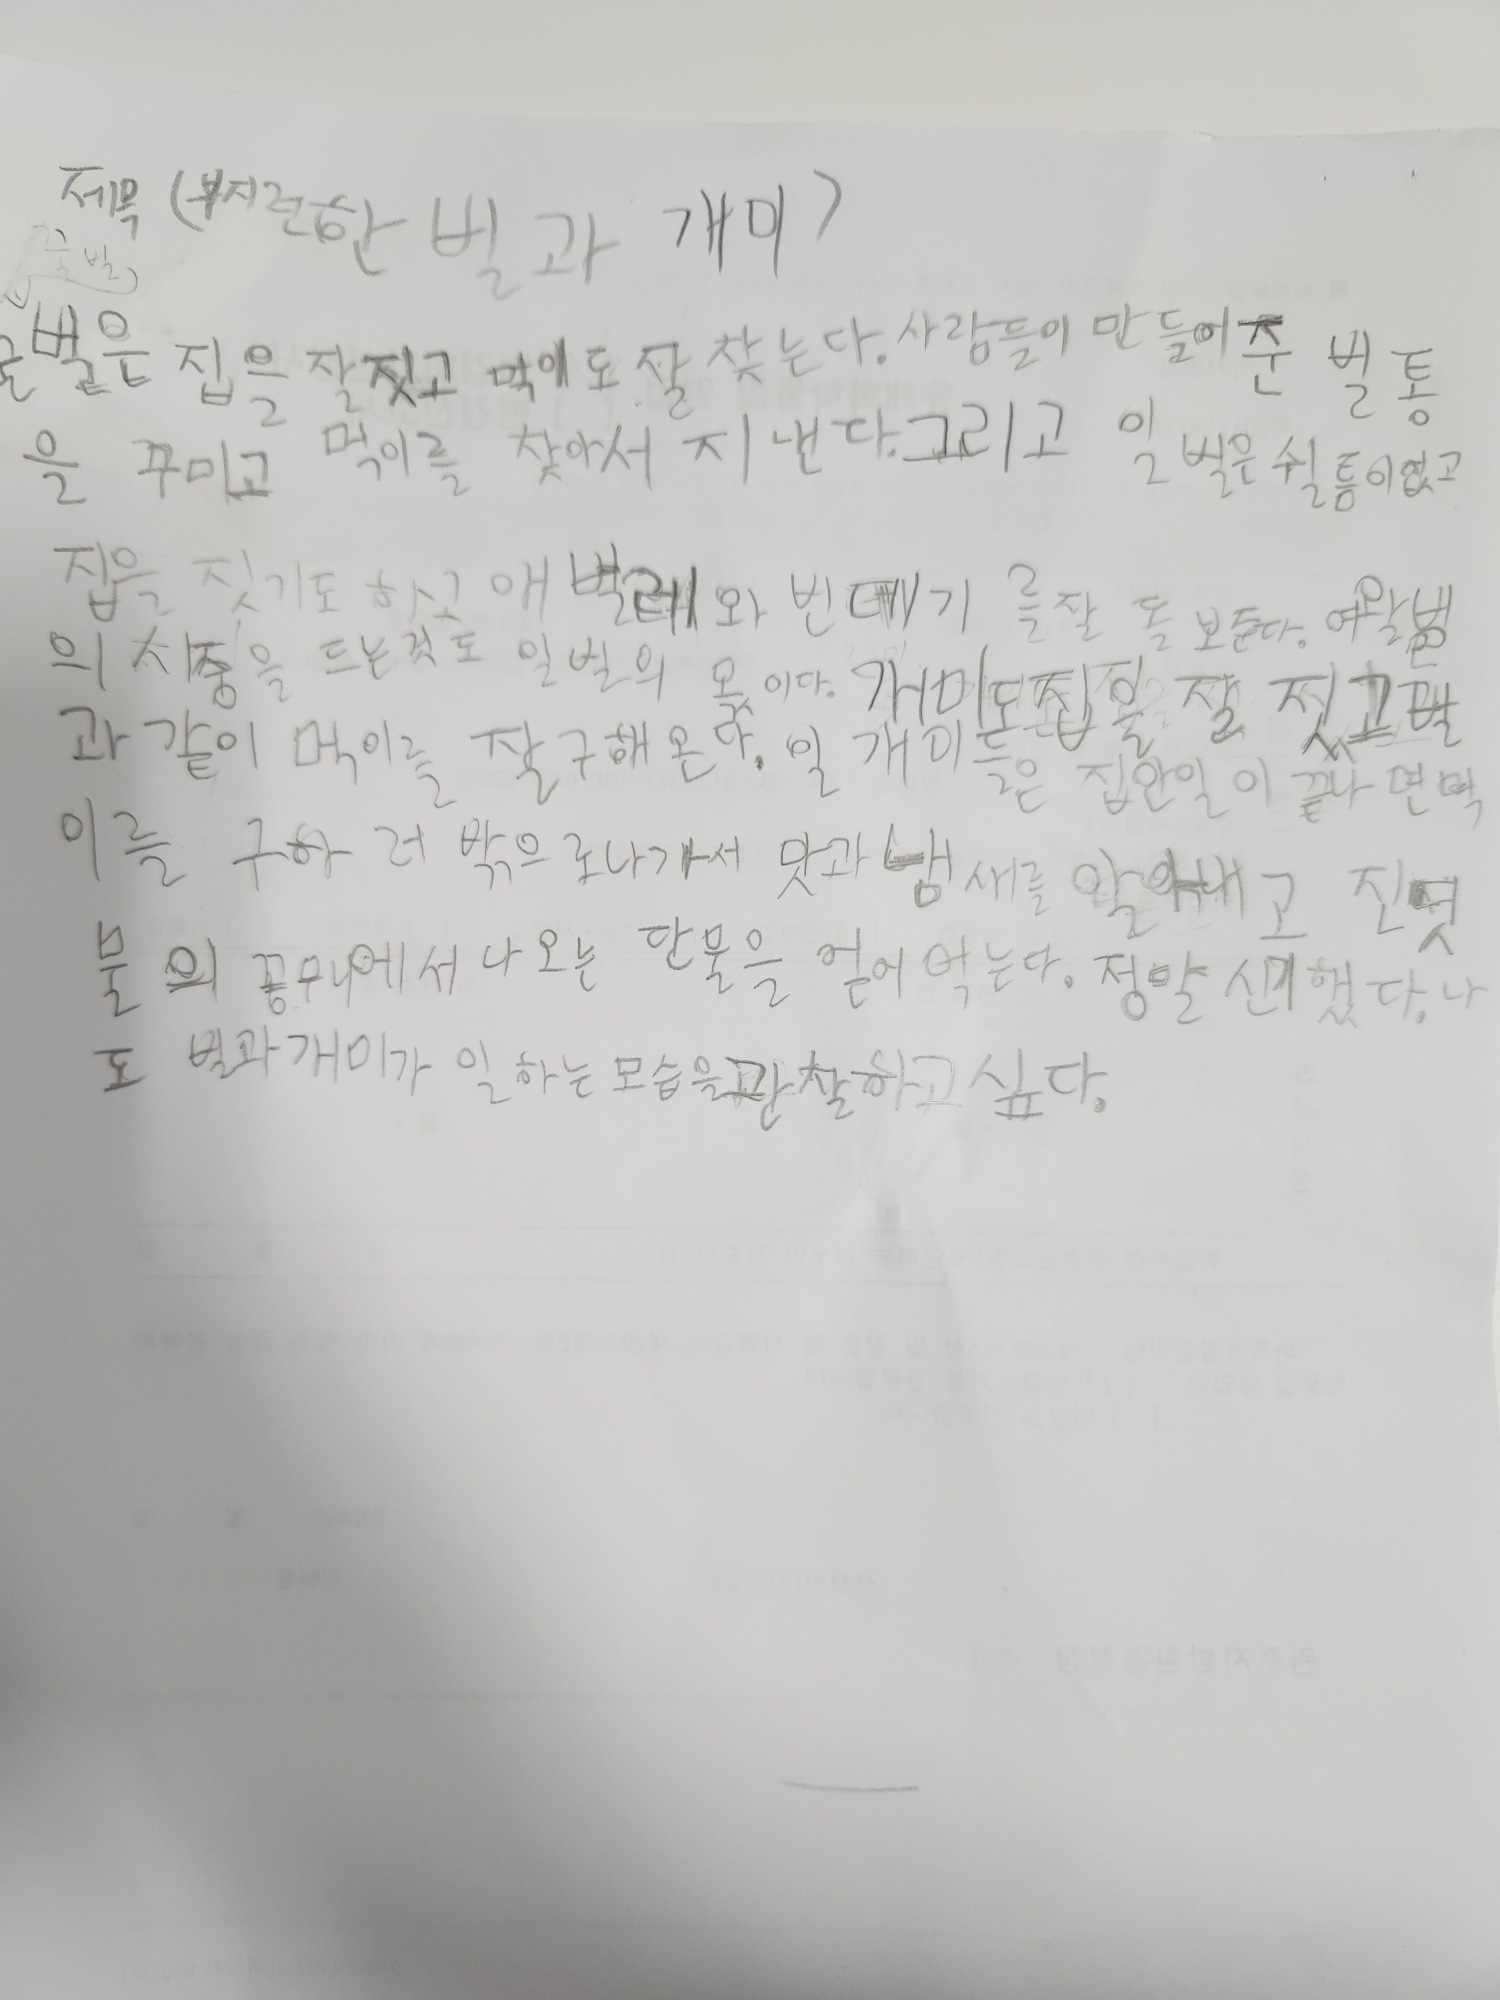 제목 (부지런한 벌과 개미)
꿀벌
꿀벌은 집을 잘짓고 먹이도 잘 찾는다. 사람들이 만들어준 벌통
을 꾸미고 먹이를 찾아서 지낸다. 그리고 일벌은 쉴틈이없고
집을 짓기도 하고 애벌레와 번데기를 잘 돌본다. 여왕벌
의 시중을 드는것도 일벌의 몫이다. 개미도 집을 잘 짓고 벌
과 같이 먹이를 잘 구해온다. 일개미들은 집안일이 끝나면 먹
이를 구하러 밖으로나가서 맛과 냄새를 알아내고 진딧
물의 꽁무니에서 나오는 단물을 얻어 먹는다. 정말 신기했다. 나
도 벌과 개미가 일하는 모습을 관찰하고 싶다.